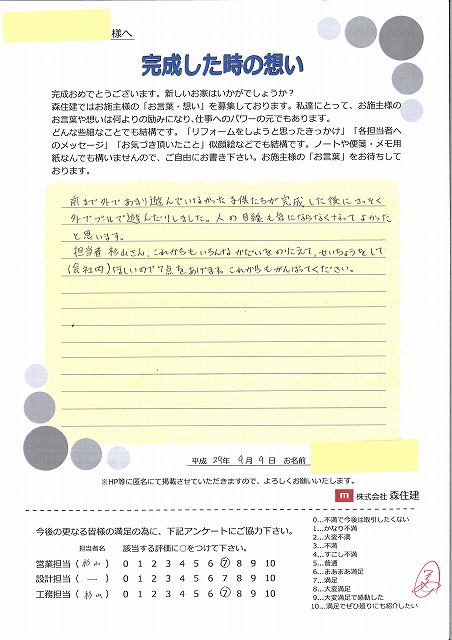 様へ
完成した時の想い
完成おめでとうございます。新しいお家はいかがでしょうか？
森住建ではお施主様の「お言葉・想い」を募集しております。私達にとって、お施主様の
お言葉や想いは何よりの励みになり、仕事へのパワーの元でもあります。
どんな些細なことでも結構です。「リフォームをしようと思ったきっかけ」「各担当者へ
のメッセージ」「お気づき頂いたこと」似顔絵などでも結構です。ノートや便箋・メモ用
紙なんでも構いませんので、ご自由にお書き下さい。お施主様の「お言葉」をお待ちして
おります。
前まで外であまり遊んでいなかった子供たちが完成した後にさっそく
外でプールで遊んだりしました。人の目線も気にならなくなってよかった
と思います。
担当者 杉山さん、これからもいろんなかだいをのりこえて、せいちょうをして
(会社内)ほしいので7点をあげます。これからもがんばってください。
平成 29年 9月 9日 お名前
※HP等に匿名にて掲載させていただきますので、よろしくお願いいたします。
m 株式会社 森住建
今後の更なる皆様の満足の為に、下記アンケートにご協力下さい。
担当者名 該当する評価に○をつけて下さい。
営業担当（ 杉山 ） 0 1 2 3 4 5 6 7 8 9 10
設計担当（ ー ） 0 1 2 3 4 5 6 7 8 9 10
工務担当（ 杉山 ） 0 1 2 3 4 5 6 7 8 9 10
0…不満で今後は取引したくない
1…かなり不満
2…大変不満
3…不満
4…すこし不満
5…普通
6…まあまあ満足
7…満足
8…大変満足
9…大変満足で感動した
10…満足でぜひ周りにも紹介したい